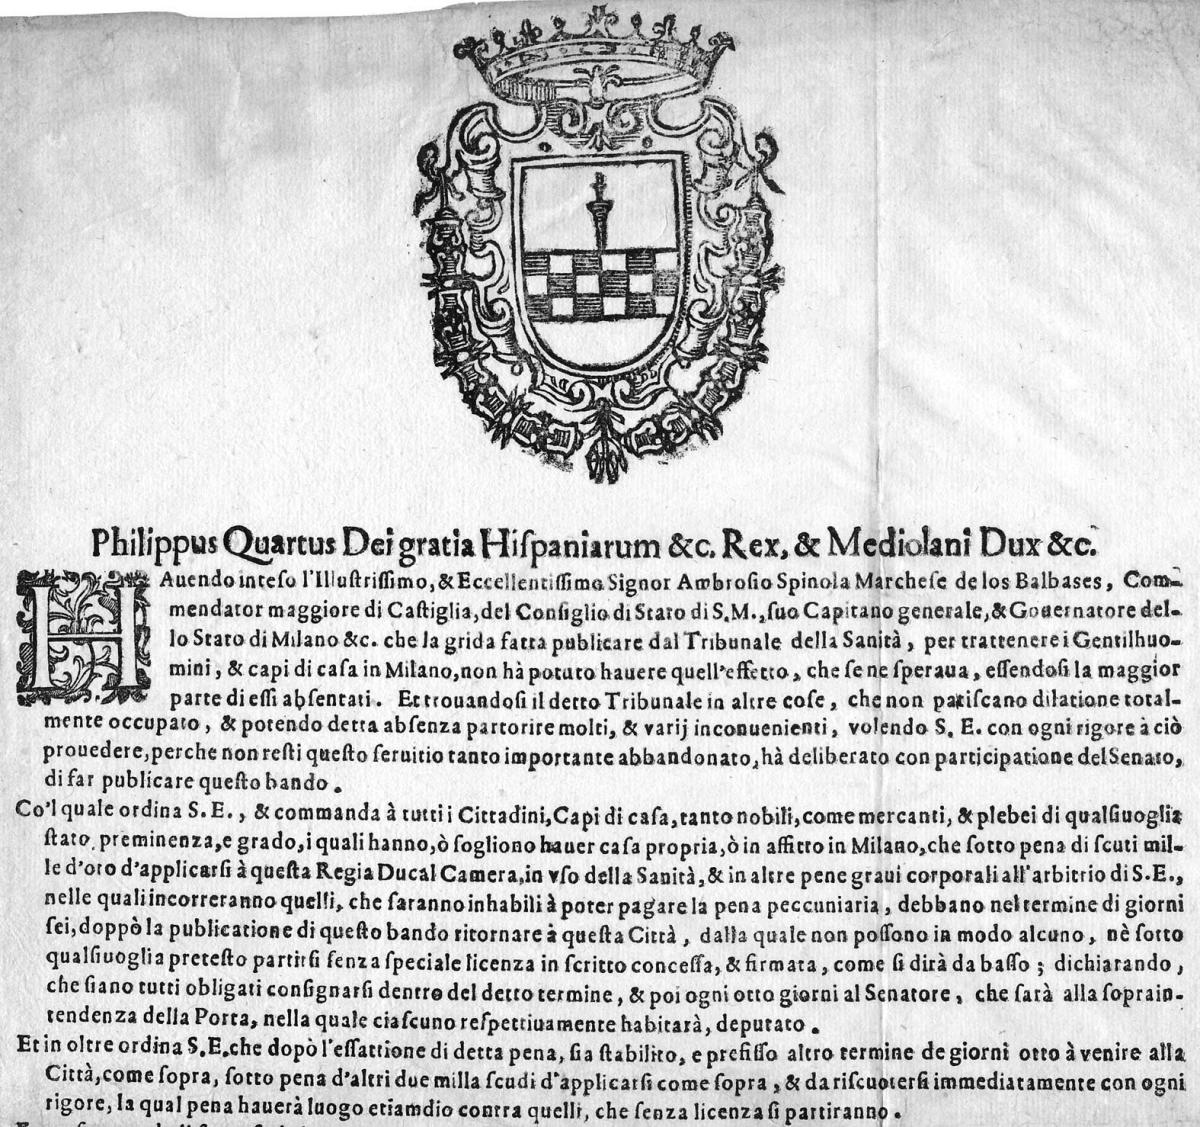 Philippus Quartus Dei gratia Hiſpaniarum &c. Rex, & Mediolani Dux &c.
HAuendo inteſo l'Illuſtriſſimo, & Eccellentiſſimo Signor Ambroſio Spinola Marcheſe de los Balbases, Com-
mendator maggiore di Caſtiglia, del Conſiglio di Stato di S.M., ſuo Capitano generale, & Gouernatore del-
lo Stato di Milano &c. che la grida fatta publicare dal Tribunale della Sanità, per trattenere i Gentilhuo-
mini, & capi di caſa in Milano, non hà potuto hauere quell'effetto, che ſe ne ſperaua, eſſendoſi la maggior
parte di eſſi abſentati. Et trouandoſi il detto Tribunale in altre coſe, che non patiſcano dilatione total-
mente occupato, & potendo detta abſenza partorire molti, & varij inconuenienti, volendo S. E. con ogni rigore à ciò
prouedere, perche non reſti queſto ſeruitio tanto importante abbandonato, hà deliberato con participatione del Senato,
di far publicare queſto bando.
Co'l quale ordina S. E., & commanda à tutti i Cittadini, Capi di caſa, tanto nobili, come mercanti, & plebei di qualſiuoglia
ſtato, preminenza, e grado, i quali hanno, ò ſogliono hauer caſa propria, ò in affitto in Milano, che ſotto pena di ſcuti mil-
le d'oro d'applicarſi à queſta Regia Ducal Camera, in vſo della Sanità, & in altre pene graui corporali all'arbitrio di S.E.,
nelle quali incorreranno quelli, che ſaranno inhabili à poter pagare la pena peccuniaria, debbano nel termine di giorni
ſei, doppò la publicatione di queſto bando ritornare à queſta Città, dalla quale non poſſono in modo alcuno, nè ſotto
qualſiuoglia preteſto partirſi ſenza ſpeciale licenza in ſcritto conceſſa, & firmata, come ſi dirà da baſſo; dichiarando,
che ſiano tutti obligati conſignarſi dentro del detto termine, & poi ogni otto giorni al Senatore, che ſarà alla ſoprain-
tendenza della Porta, nella quale ciaſcuno reſpettiuamente habitarà, deputato.
Et in oltre ordina S.E. che dopò l'eſſattione di detta pena, ſia ſtabilito, e prefiſſo altro termine de giorni otto à venire alla
Città, come ſopra, ſotto pena d'altri due milla ſcudi d'applicarſi come ſopra, & da riſcuoterſi immediatamente con ogni
rigore, la qual pena hauerà luogo etiamdio contra quelli, che ſenza licenza ſi partiranno.